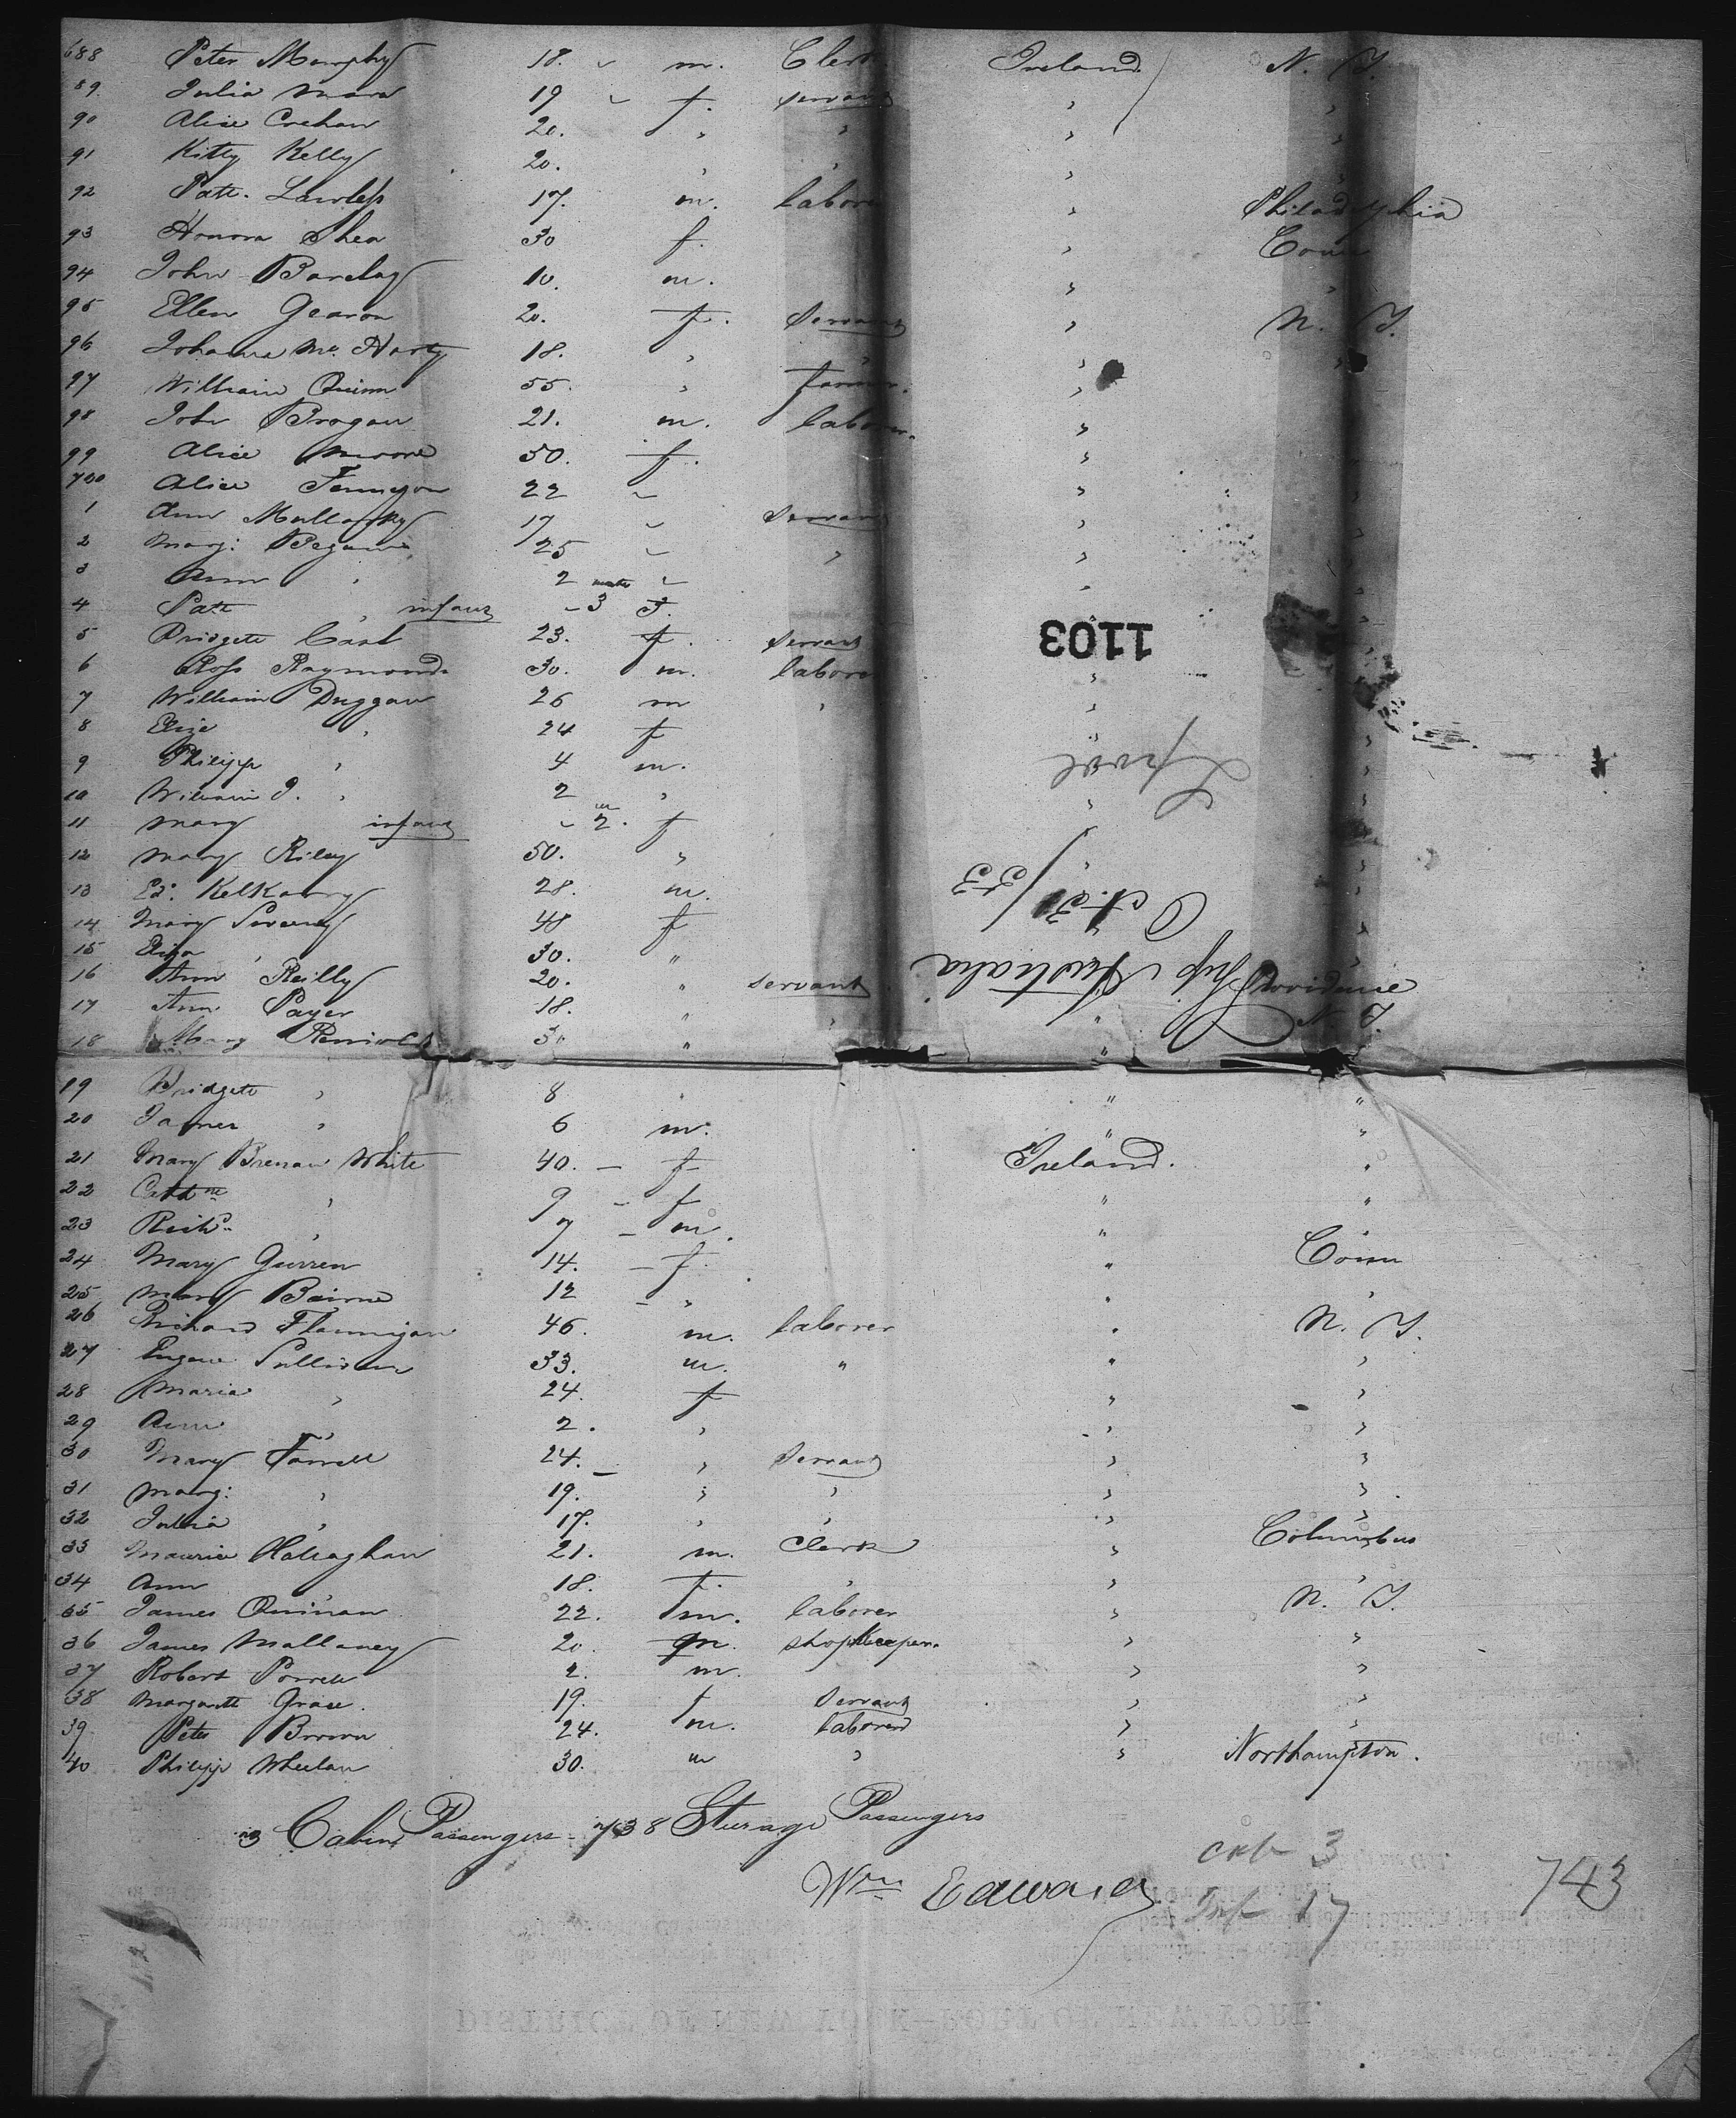 688 Peter Murphy 18. " m. Clerk Ireland N. Y.
89. Julia Mara 19 " f. servant " "
90 Alice Crehan 20. " " " "
91 Kitty Kelly 20. " " " "
92 Patt. Lawless 17. m. labore " Philadelphia
93 Honora Shea 30 f. " Conn
94 John Barclay 10. m. " "
95 Ellen Gearon 20. f. Servant " N. Y.
96 Johanna Mc Harty 18. " " " "
97 William Quinn 55. " farmer. "
98 John Brogan 21. m. laborer. "
99 Alice Moore 50. f. "
700 Alice Fennyon 22 " "
1 Ann Mullarky 17 " Servant "
2 Marg: Began 25 " " "
3 Ann " 2 "
4 Patt " infant - 3 f.
5 Bridgett Cast 23. f. servant
6 Ross Raymond 30. m. labore "
7 William Duggan 26 m " "
8 Eliza " 24 f "
9 Philipp " 4 m. "
10 William J. " 2 " "
11 Mary infant - 2. m f "
12 Mary Riley 50. " "
13 Ed. Kelkarry 28. m. "
14 Mary Sweeny 48 f "
15 Eliza " 30. " "
16 Ann Reilly 20. " servant Providence
17 Ann Payer 18. " " " R. N.
18 Mary 30 " "
1103
Lpool
Oct. 31/53
Ship Australia
19 Bridgett " 8 " " "
20 James " 6 m. " "
21 Mary Brenan White 40. - f Ireland. "
22 Cathne " 9 - f " "
23 Richd. " 7 - m. " "
24 Mary Gurren 14. - f. " Conn
25 Mary Bairne 12 - " " "
26 Richard Flannigan 46. m. laborer " N. Y.
27 Eugene Sullivan 33. m. " " "
28 Maria " 24. f " "
29 Ann " 2. " " "
30 Mary Farrell 24. - " Servant " "
31 Marg: " 19. " " " "
32 Julia " 17. " " " "
33 Maurice Halraghan 21. m. Clerk " Columbus
34 Ann " 18. f. " " "
35 James Quinan 22. m. laborer " N. Y.
36 James Mallaney 20. m. shopkeeper. " "
37 Robert Porrell 2. m. " "
38 Margarett Grace. 19. f Servant " "
39. Peter Brown 24. m. laborer " "
40 Philipp Whelan 30. m " " Northampton.
3 Cabin Passengers - 738 Steerage Passengers
Wm Edwards
cab 3
Inf 17
743
DISTRICT OF NEW YORK—PORT OF NEW YORK